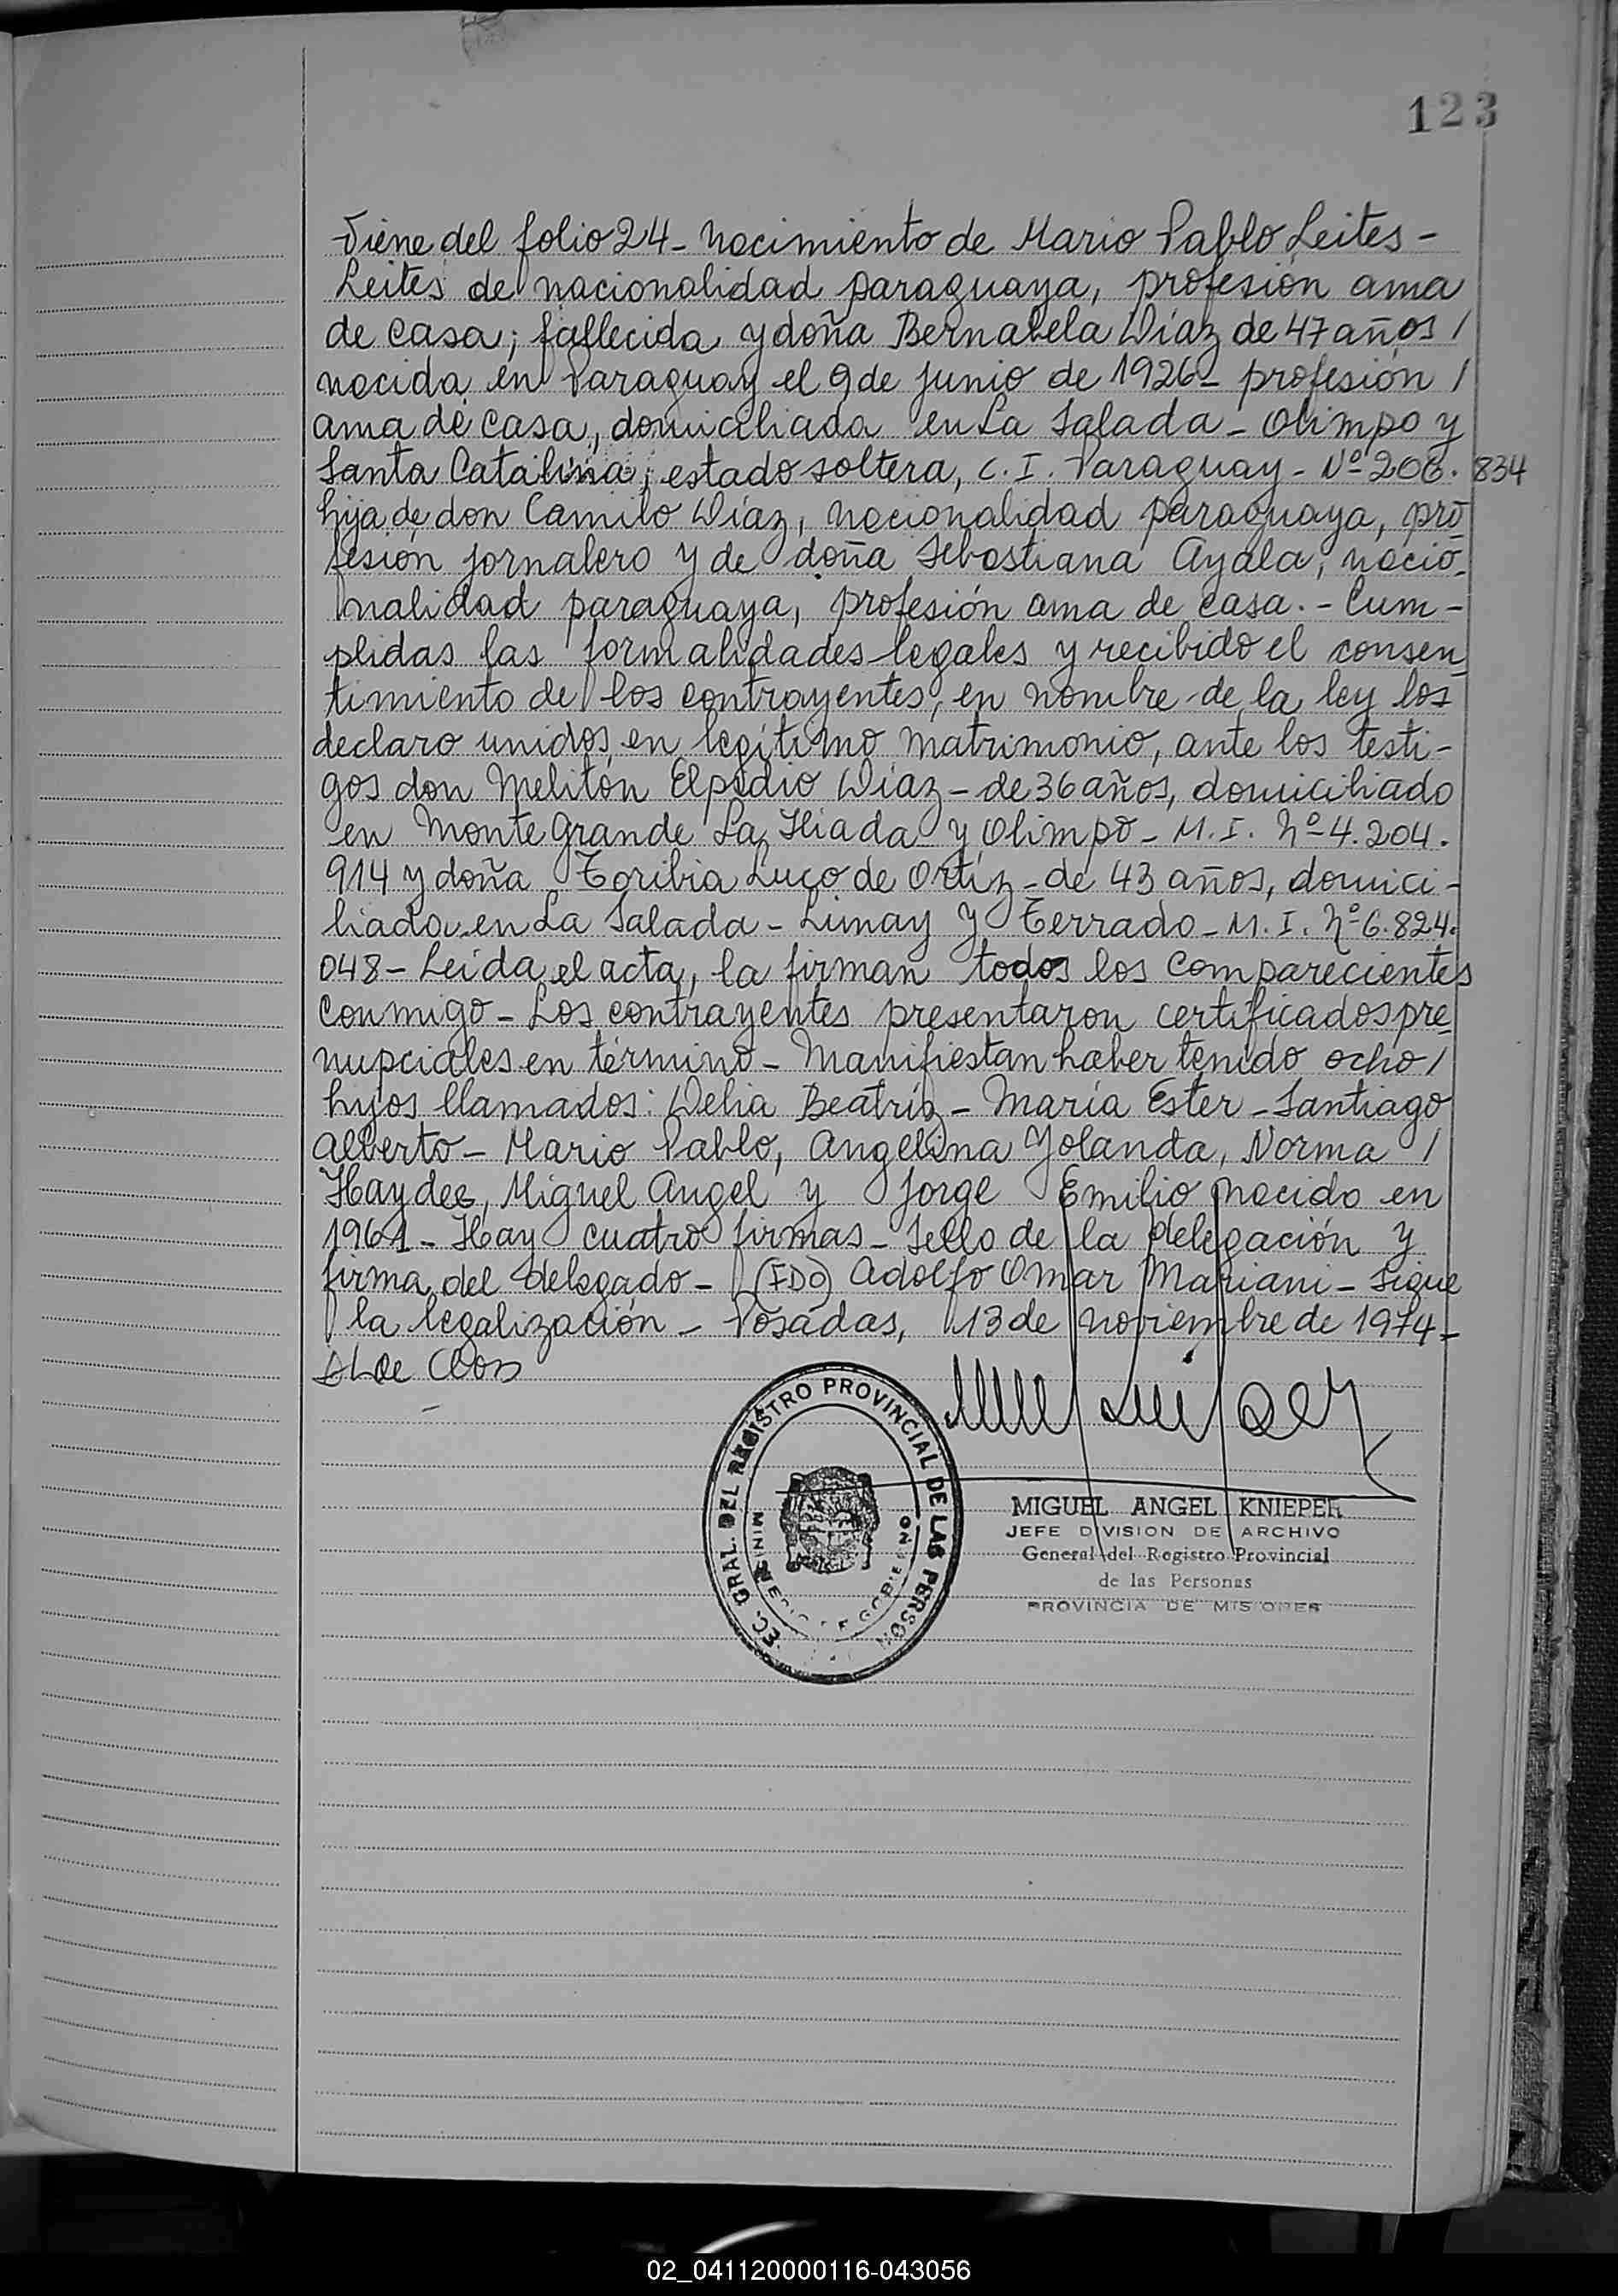 123
Viene del folio 24- Nacimiento de Mario Pablo Leites-
Leites de nacionalidad paraguaya, profesión ama
de casa; fallecida y doña Bernabela Díaz de 47 años /
nacida en Paraguay el 9 de junio de 1926- profesión /
ama de casa, domiciliada en La Salada- Olimpo y
Santa Catalina, estado soltera, C. I. Paraguay- Nº 206.834
hija de don Camilo Díaz, nacionalidad paraguaya, pro-
fesión jornalero y de doña Sebastiana Ayala, nacio-
nalidad paraguaya, profesión ama de casa.- Cum-
plidas las formalidades legales y recibido el consen-
timiento de los contrayentes, en nombre de la ley los
declaro unidos en legítimo matrimonio, ante los testi-
gos don Melitón Elpidio Díaz- de 36 años, domiciliado
en Monte Grande La Iliada y Olimpo- M. I. Nº 4.204.
914 y doña Toribia Lugo de Ortiz- de 43 años, domici-
liada en La Salada- Limay y Terrado- M. I. Nº 6.824.
048- Leida el acta, la firman todos los comparecientes
conmigo- Los contrayentes presentaron certificados pre-
nupciales en término- Manifiestan haber tenido ocho /
hijos llamados: Delia Beatriz- María Ester- Santiago
Alberto- Mario Pablo, Angelina Yolanda, Norma /
Haydee, Miguel Angel y Jorge Emilio nacido en
1961- Hay cuatro firmas- Sello de la delegación y
firma del delegado- (FDO) Adolfo Omar Mariani- Sigue
la legalización- Posadas, 13 de noviembre de 1974-
GRAL. DEL REGISTRO PROVINCIAL DE LAS PERSON
MIGUEL ANGEL KNIEPER
JEFE DIVISION DE ARCHIVO
General del Registro Provincial
de las Personas
PROVINCIA DE MISIONES
02_041120000116-043056